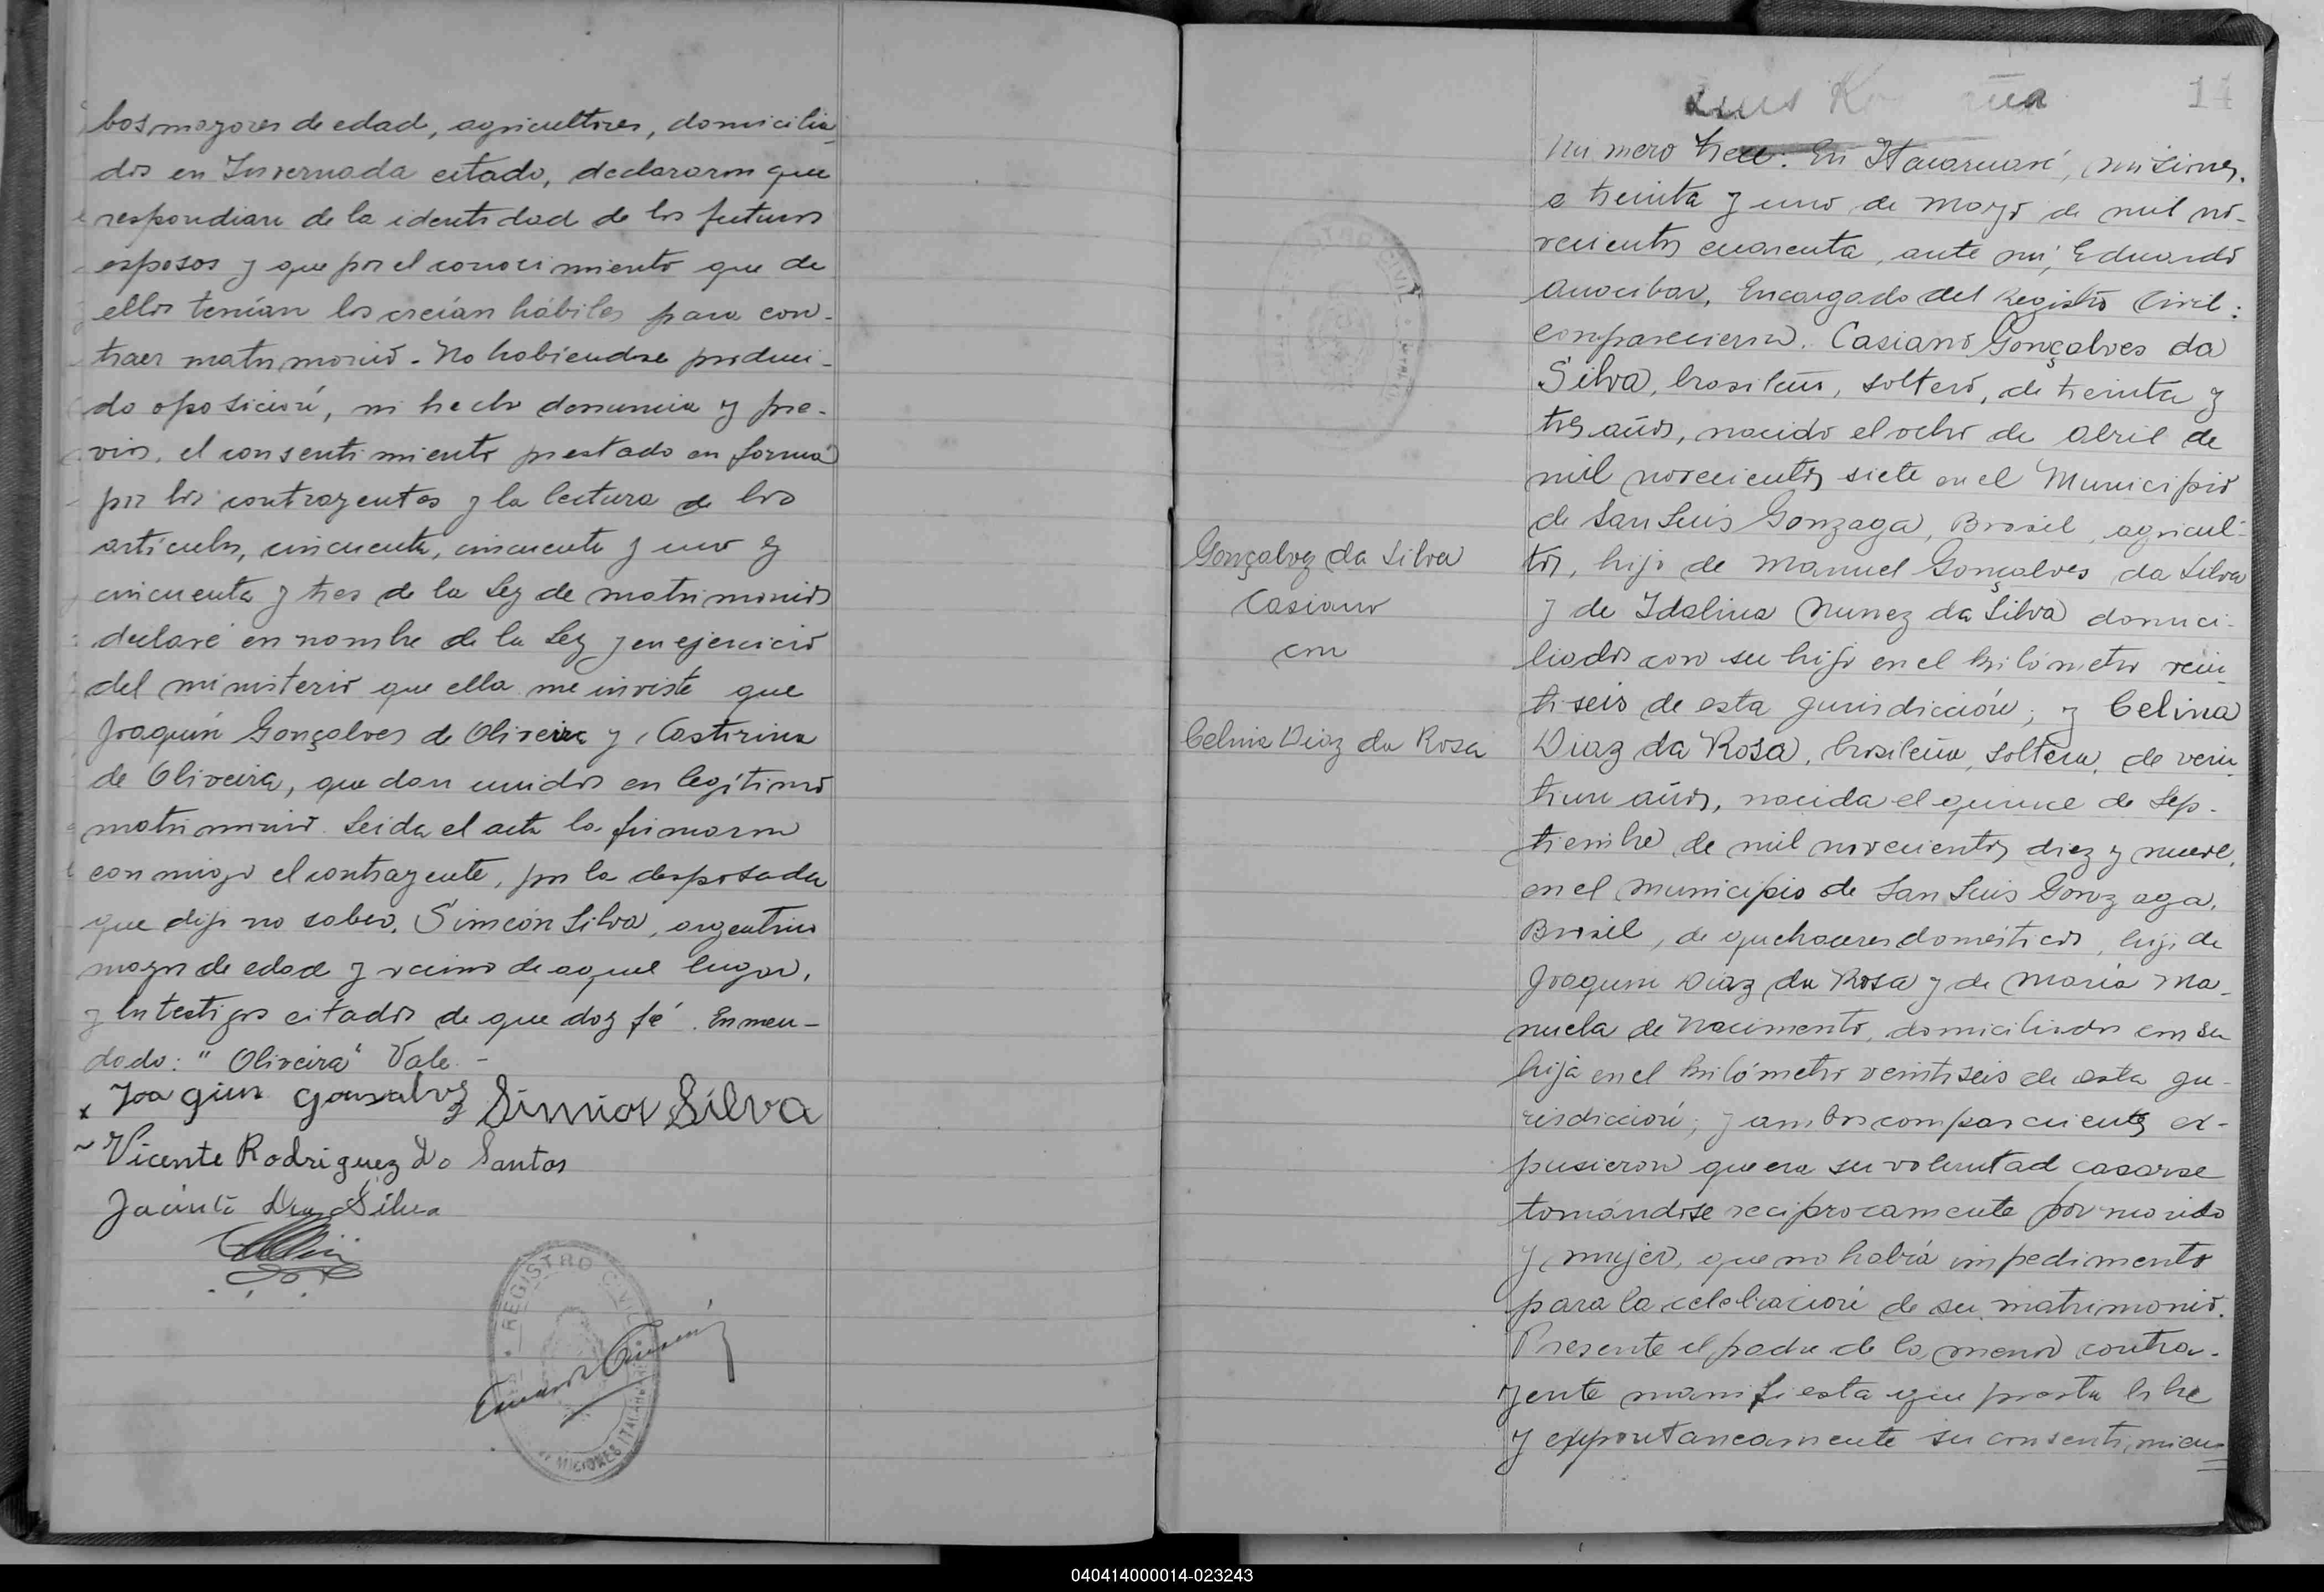 bos mayores de edad, agricultores, domicilia-
dos en Invernada citado, declararon que
respondian de la identidad de los futuros
esposos y que por el conocimiento que de
ellos tenían los creían hábiles para con-
traer matrimonio. No habiendose produci-
do oposición, ni hecho denuncia y pre-
vios, el consentimiento prestado en forma
por los contrayentes y la lectura de los
artículos, cincuenta, cincuenta y uno y
cincuenta y tres de la Ley de matrimonios
declaré en nombre de la Ley y en ejercicio
del ministerio que ella me inviste que
Joaquín Gonçalves de Oliveira y Castirina
de Oliveira, quedan unidos en legítimo
matrimonio. Leida el acta la firmaron
conmigo el contrayente, por la desposada
que dijo no saber, Simeón Silva, argentino
mayor de edad y vecino de aquel lugar,
y los testigos citados de que doy fé. Enmen-
dado: "Oliveira" Vale.-
x Joaquin Gonsalvez Simion Silva
Vicente Rodriguez Do Santos
Jacinto Da Silva
REGISTRO CIVIL
MISIONES
14
Número trece: En Itacaruaré, Misiones,
a treinta y uno de Mayo de mil no-
vecientos cuarenta, ante mí, Eduardo
Anocibar, Encargado del Registro Civil:
comparecieron. Casiano Gonçalves da
Silva, brasileño, soltero, de treinta y
tres años, nacido el ocho de Abril de
mil novecientos siete en el Municipio
de San Luis Gonzaga, Brasil, agricul-
tor, hijo de Manuel Gonçalves da Silva
y de Idalina Nunez da Silva domici-
liados con su hijo en el kilómetro vein
tiseis de esta jurisdicción; y Celina
Diaz da Rosa, brasileña, soltera, de vein
tiun años, nacida el quince de Sep-
tiembre de mil novecientos diez y nueve,
en el Municipio de San Luis Gonzaga,
Brasil, de quehaceres domésticos, hija de
Joaquin Diaz da Rosa y de María Ma-
nuela de Nacimento, domiciliados con su
hija en el kilómetro veintiseis de esta ju-
risdicción; y ambos comparecientes ex-
pusieron que era su voluntad casarse
tomándose reciprocamente por marido
y mujer, que no había impedimento
para la celebración de su matrimonio.
Presente el padre de la menor contra-
yente manifiesta que presta libre
y expontaneamente su consentimien
Gonçalvez da Silva
Casiano
con
Celina Diaz da Rosa
040414000014-023243